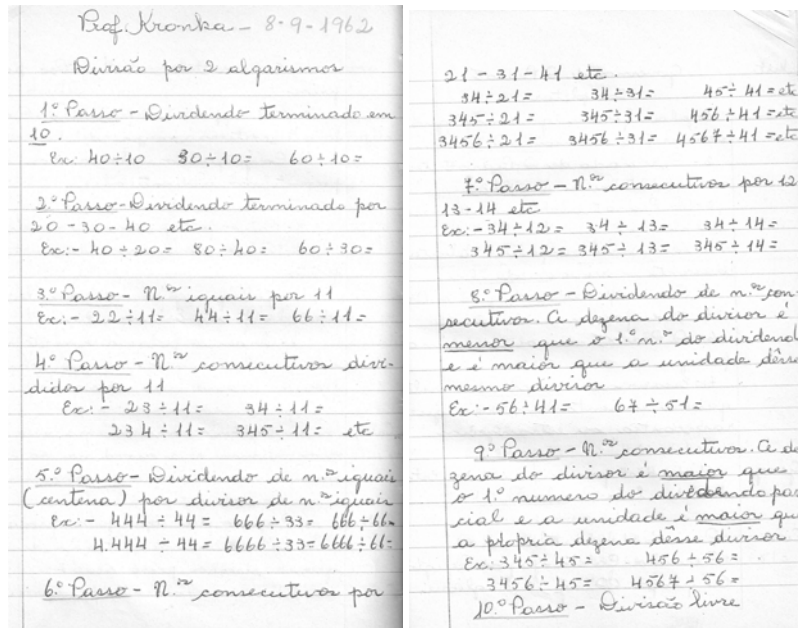 Prof. Kronka - 8-9-1962
Divisão por 2 algarismos
1º Passo - Dividendo terminado em
10.
Ex: 40÷10 30÷10= 60÷10=
2º Passo - Dividendo terminado por
20-30-40 etc.
Ex:- 40÷20= 80÷40= 60÷30=
3º Passo - N.os iguais por 11
Ex:- 22÷11= 44÷11= 66÷11=
4º Passo - N.os consecutivos divi-
didos por 11
Ex:- 23÷11= 34÷11=
234÷11= 345÷11= etc
5º Passo - Dividendo de n.os iguais
(centena) por divisor de n.os iguais
Ex:- 444÷44= 666÷33= 666÷66=
4.444÷44= 6666÷33= 6666÷66=
6º Passo - N.os consecutivos por
21-31-41 etc.
34÷21= 34÷31= 45÷41= etc
345÷21= 345÷31= 456÷41= etc
3456÷21= 3456÷31= 4567÷41= etc
7º Passo - N.os consecutivos por 12
13-14 etc
Ex:- 34÷12= 34÷13= 34÷14=
345÷12= 345÷13= 345÷14=
8º Passo - Dividendo de n.os con-
secutivos. A dezena do divisor é
menor que o 1º n.º do dividend
e é maior que a unidade dêsse
mesmo divisor
Ex:- 56÷41= 67÷51=
9º Passo - N.os consecutivos. A de
zena do divisor é maior que
o 1º numero do dividendo par
cial e a unidade é maior qu
a própria dezena dêsse divisor
Ex: 345÷45= 456÷56=
3456÷45= 4567÷56=
10º Passo - Divisão livre